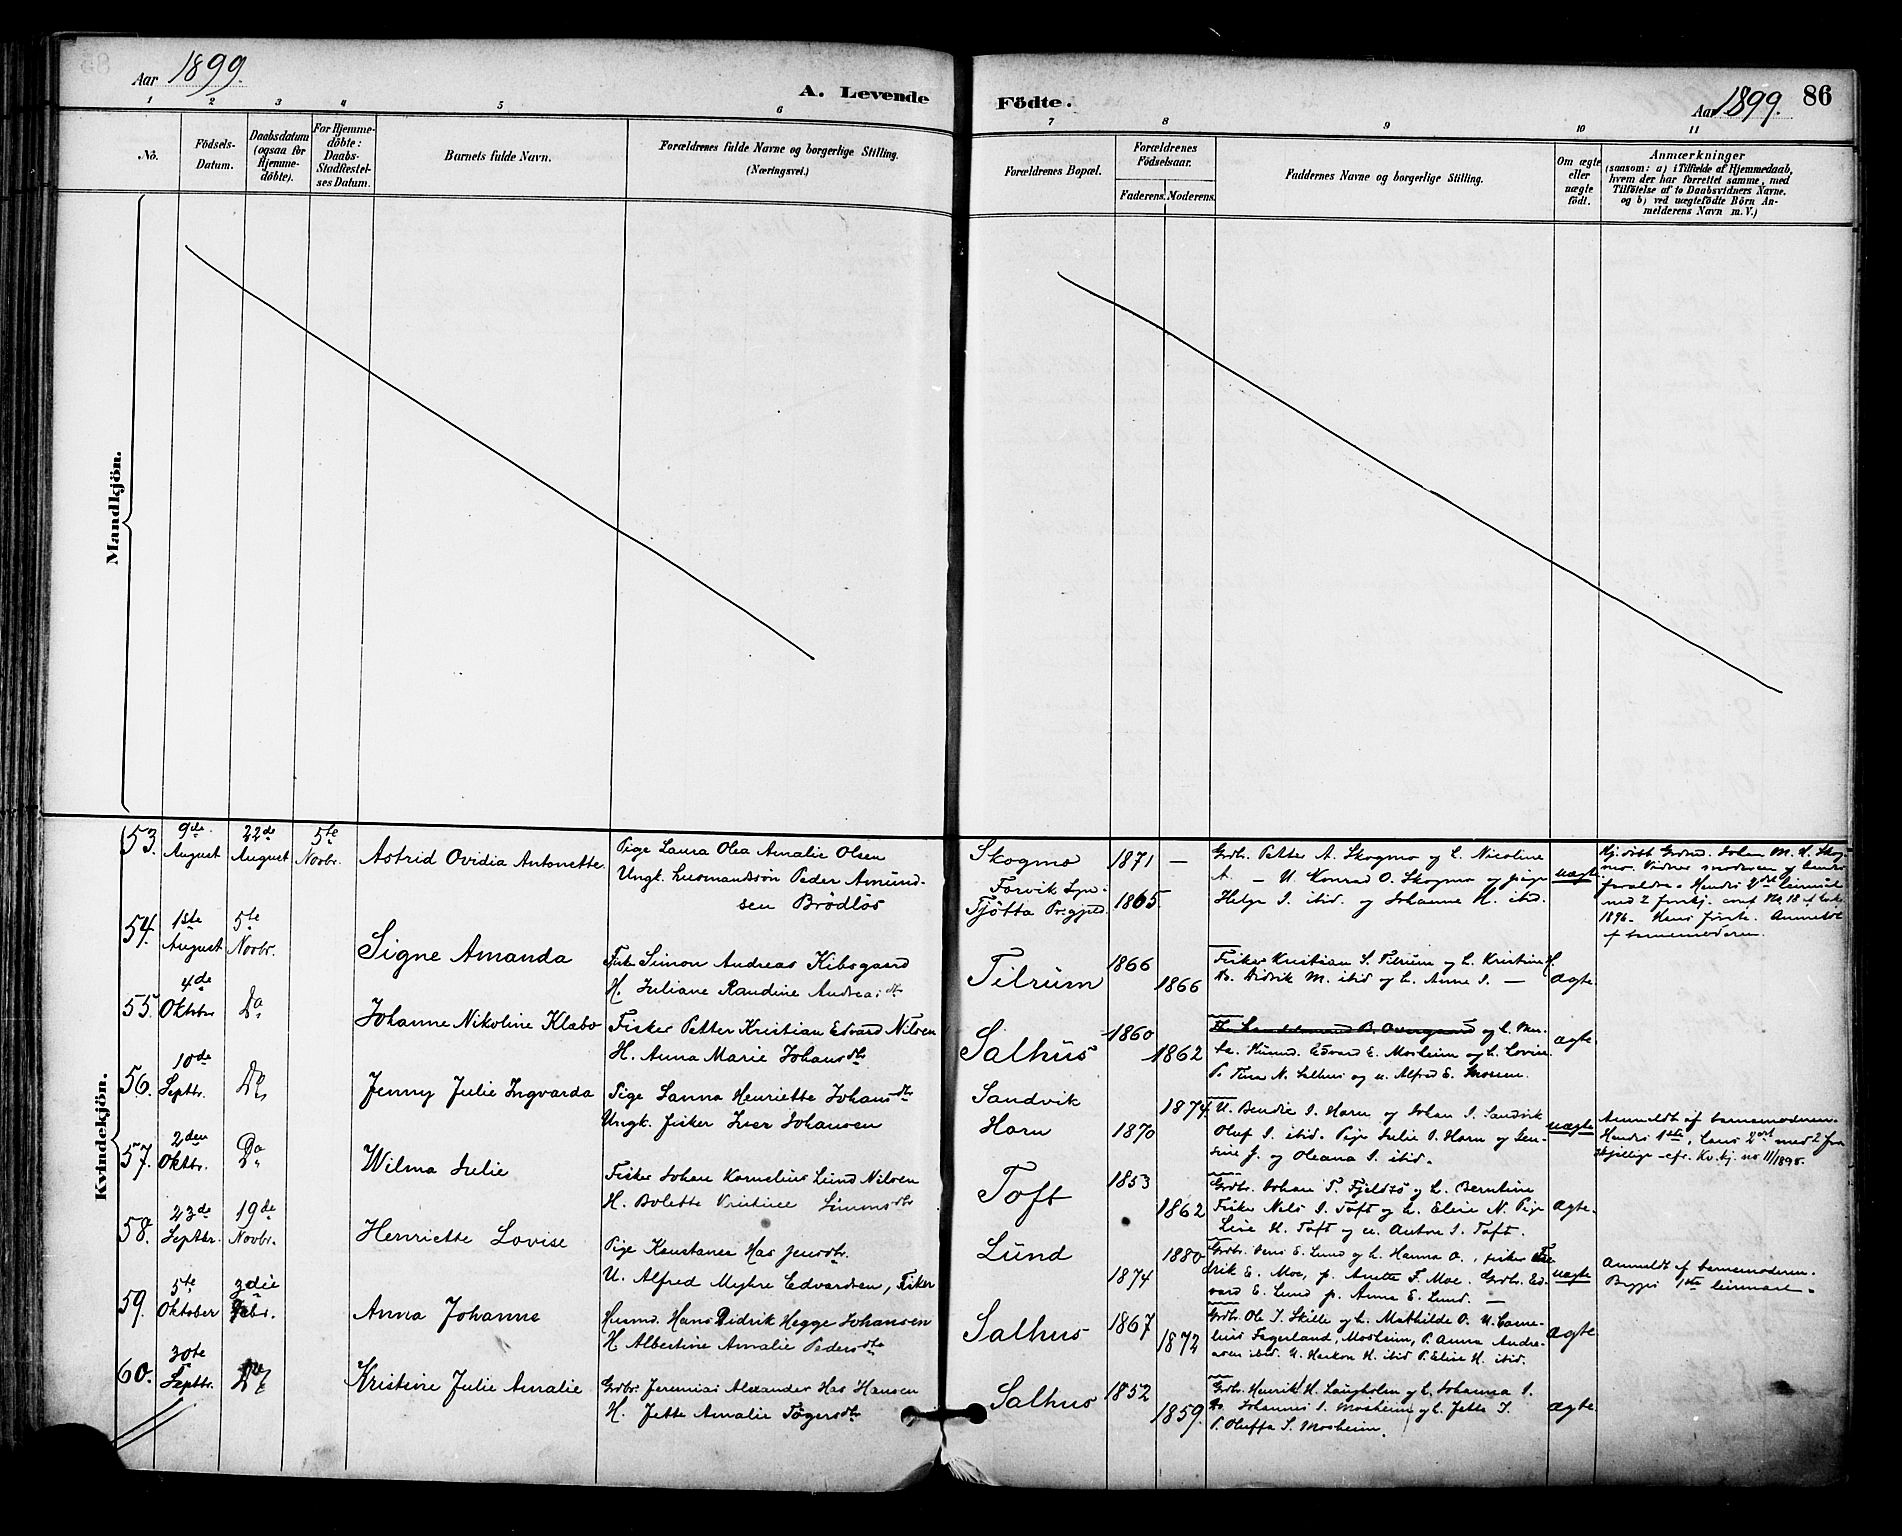 Aar 1899.
A. Levende
Födte.
Aar 1899.
86
1 2 3 4 5 6 7 8 9 10 11
No.
Födsels-
Datum.
Daabsdatum
(ogsaa for
Hjemme-
döbte).
For Hjemme-
döbte:
Daabs-
Stadfestel-
ses Datum.
Barnets fulde Navn.
Forældrenes fulde Navne og borgerlige Stilling.
(Næringsvei.)
Forældrenes Bopæl.
Forældrenes
Födselsaar.
Faderens. Moderens.
Faddernes Navne og borgerlige Stilling.
Om ægte
eller
uægte
födt.
Anmærkninger
(saasom: a) i Tilfælde af Hjemmedaab,
hvem der har forrettet samme, med
Tilföielse af to Daabsvidners Navne.
og b) ved uægtefödte Börn An-
melderens Navn m. V.)
Mandkjön.
Kvindekjön.
53. 9de August 22de August 5te Novbr. Astrid Ovidia Antonette
Pige Laura Olea Amalie Olsen
Ungk. Husmandssön Peder Amund-
sen Brödlös
Skogmo 1871 —
Forvik
Tjötta Prgjeld. 1865
Grdbr. Petter A. Skogmo og h. Nicoline
A. — U. Konrad O. Skogmo og pige
Helga I. ibid. og Johanne H. ibid.
uægte
54. 1ste August 5te Novbr. Signe Amanda
Fisker Simon Andreas Kibsgaard
H. Juliane Randine Andreasdtr
Tilrum 1866 1866
Fisker Kristian S. Tilrum og h. Kristine H.
Do. Didrik M. ibid og h. Anne I. —
ægte.
55. 4de Oktober Do. Johanne Nikoline Klæbo
Fisker Petter Kristian Edvard Nilsen
H. Anna Marie Johansdtr
Salhus 1860 1862
B. Overgaard og h.
Edvard E. Mosheim og h. Lovise
P. Tina N. Salhus og u. Alfred E. Mosheim.
ægte
56. 10de Septbr. Do. Jenny Julie Ingvarda
Pige Sanna Henriette Johansdtr
Ungk. fisker Iver Johansen
Sandvik 1874
Horn 1870
U. Bendix I. Horn og Johan I. Sandvik
Oluf I. ibid. Pige Julie P. Horn og Jen-
sine J. og Oleana I. ibid.
uægte
Anmeldt af barnemoderen.
Hendes 1ste, hans 2det med 2 for-
skjellige — cfr. Kv.kj. no 11/1895.
57. 2den Oktbr. Do. Wilma Julie
Fisker Johan Kornelius Lund Nilsen
H. Bolette Kristine Simonsdtr
Toft 1853 1862
Grdbr. Johan T. Fjeldsö og h. Berntine
Fisker Nils I. Toft og h. Elise N. Pige
Lise H. Toft og u. Anton I. Toft.
ægte.
58. 23de Septbr. 19de Novbr. Henriette Lovise
Pige Konstance Has Jensdtr.
U. Alfred Myhre Edvardsen, Fisker
Lund 1880 1874
Grdbr. Jens E. Lund og h. Hanna O., fisker Fre-
drik E. Moe, p. Anette F. Moe. Grdbr. Ed-
vard E. Lund p. Anna E. Lund. —
uægte
Anmeldt af barnemoderen.
Begges 1ste leiermaal.
59. 5te Oktober 3die Debr. Anna Johanne
Husmd. Hans Didrik Hegge Johansen
H Albertine Amalie Pedersdtr
Salhus 1867 1872
Grdbr. Ole I. Skille og h. Mathilde O. U. Corne-
lius Fagerland, Mosheim, P. Anna Andre-
asen ibid. U. Haakon H. ibid P. Elise H. ibid.
ægte
60. 30te Septbr. Do. Kristine Julie Amalie
Grdbr. Jeremias Alexander Has Hansen
H. Jette Amalie Tögersdtr
Salhus 1852 1859.
Grdbr. Henrik H. Langholen og h. Johanna I.
Do. Johannes I. Mosheim og h. Jette I.
P. Oluffa I. Mosheim.
ægte